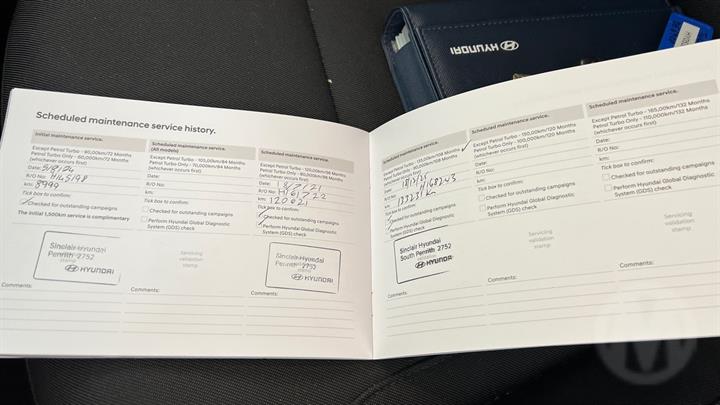 HYUNDAI
Scheduled maintenance service history.
Initial maintenance service.
Except Petrol Turbo - 90,00km/72 Months
Petrol Turbo Only - 60,000km/72 Months
(whichever occurs first)
Date:
R/O No:
km: 8999
Tick box to confirm:
Checked for outstanding campaigns
The initial 1,500km service is complimentary
Sinclair Hyundai
Penrith 2752
HYUNDAI
Comments:
Scheduled maintenance service.
(All models)
Except Petrol Turbo - 105,00km/84 Months
Petrol Turbo Only - 70,000km/84 Months
(whichever occurs first)
Date:
R/O No:
km:
Tick box to confirm:
Checked for outstanding campaigns
Perform Hyundai Global Diagnostic
System (GDS) check
Servicing
validation
stamp
Comments:
Scheduled maintenance service.
(whichever occurs first)
Date:
R/O No:
km: 120621
Tick box to confirm:
Checked for outstanding campaigns
Perform Hyundai Global Diagnostic
System (GDS) check
Sinclair Hyundai
HYUNDAI
Comments:
Scheduled maintenance service.
Except Petrol Turbo - 135,00km/108 Months
(whichever occurs first)
Date:
R/O No:
km:
Tick box to confirm:
Checked for outstanding campaigns
Perform Hyundai Global Diagnostic
System (GDS) check
Sinclair Hyundai
South Penrith 2752
HYUNDAI
Comments:
Scheduled maintenance service.
Except Petrol Turbo - 150,00km/120 Months
(whichever occurs first)
Date:
R/O No:
km:
Tick box to confirm:
Checked for outstanding campaigns
Perform Hyundai Global Diagnostic
System (GDS) check
Servicing
validation
stamp
Comments:
Scheduled maintenance service.
Except Petrol Turbo - 165,00km/132 Months
Petrol Turbo Only - 110,000km/132 Months
(whichever occurs first)
Date:
R/O No:
km:
Tick box to confirm:
Checked for outstanding campaigns
Perform Hyundai Global Diagnostic
System (GDS) check
Servicing
validation
stamp
Comments: